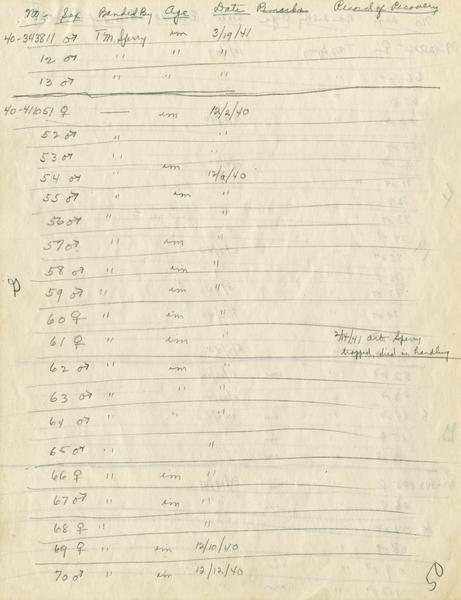 No. Sex Banded By Age Date Remarks Record of Recovery
40-343811 ♂ T.M. Sperry im 3/19/41
12 ♂ " " "
13 ♂ " " "
40-411051 ♀ — im 12/2/40
52 ♂ " "
53 ♂ "
54 ♂ " im 12/9/40
55 ♂ " im "
56 ♂ " "
57 ♂ " im "
58 ♂ " im "
59 ♂ " im "
60 ♀ " im "
61 ♀ " im " 2/14/41 Sperry
trapped, died in handling
62 ♂ " im "
63 ♂ " " "
64 ♂ " " "
65 ♂ " "
66 ♀ " im "
67 ♂ " im "
68 ♀ " "
69 ♀ " im 12/10/40
70 ♂ " im 12/12/40
50